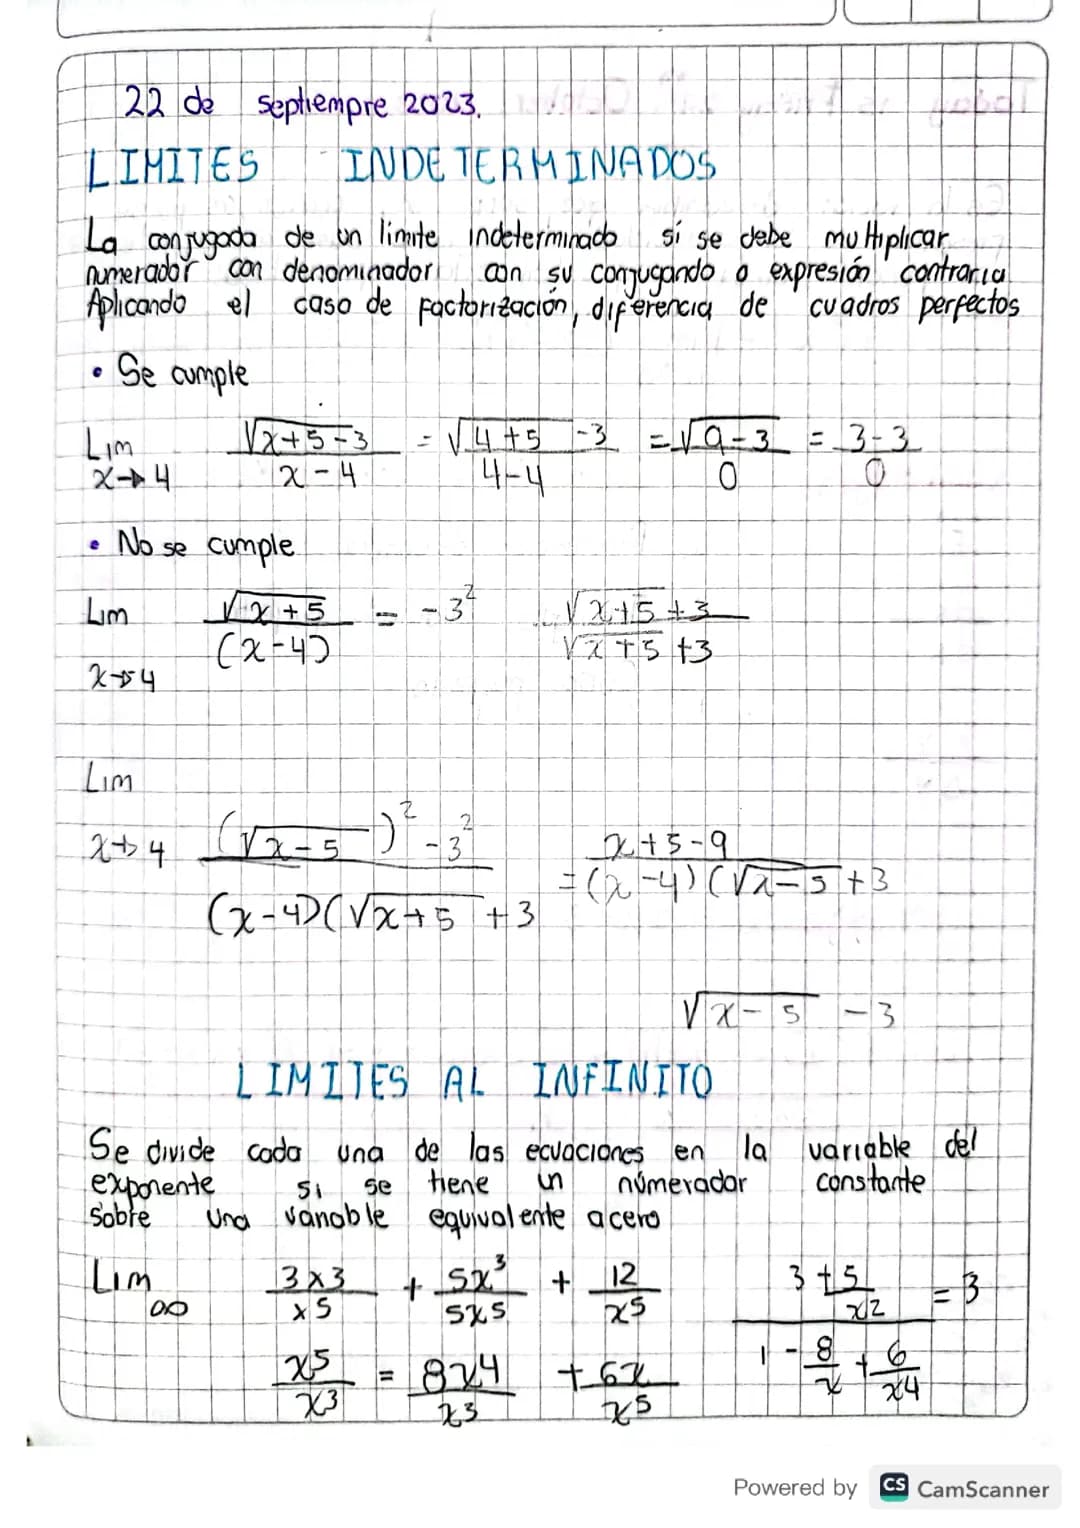 22 de septiempre 2023.
LIMITES INDETERMINADOS
La conjugada de un limite indeterminado sí se debe multiplicar
numerador con denominador con su conjugando o expresión contraria
Aplicando el caso de factorización, diferencia de cuadros perfectos
• Se cumple
Lim x→4 √x+5-3 / x-4 = √4+5 -3 / 4-4 = √9-3 / 0 = 3-3 / 0
• No se cumple
Lim x→4 √x+5 / (x-4) = -3² √x+5+3 / √x+5+3
Lim
x→4 (√x-5)² -3² / (x-4)(√x+5 +3 = x+5-9 / (x-4)(√x-5+3
√x-5 -3
LIMITES AL INFINITO
Se divide cada una de las ecuaciones en la variable del
exponente si se tiene un númerador constante
Sobre una variable equivalente a cero
Lim ∞ 3x3 / x5 + 5x³ / 5x5 + 12 / x5 3+5 / x2 = 3
x5 / x3 = 8x4 / x3 + 6x / x5 1 - 8 / x + 6 / x4
Powered by CS CamScanner